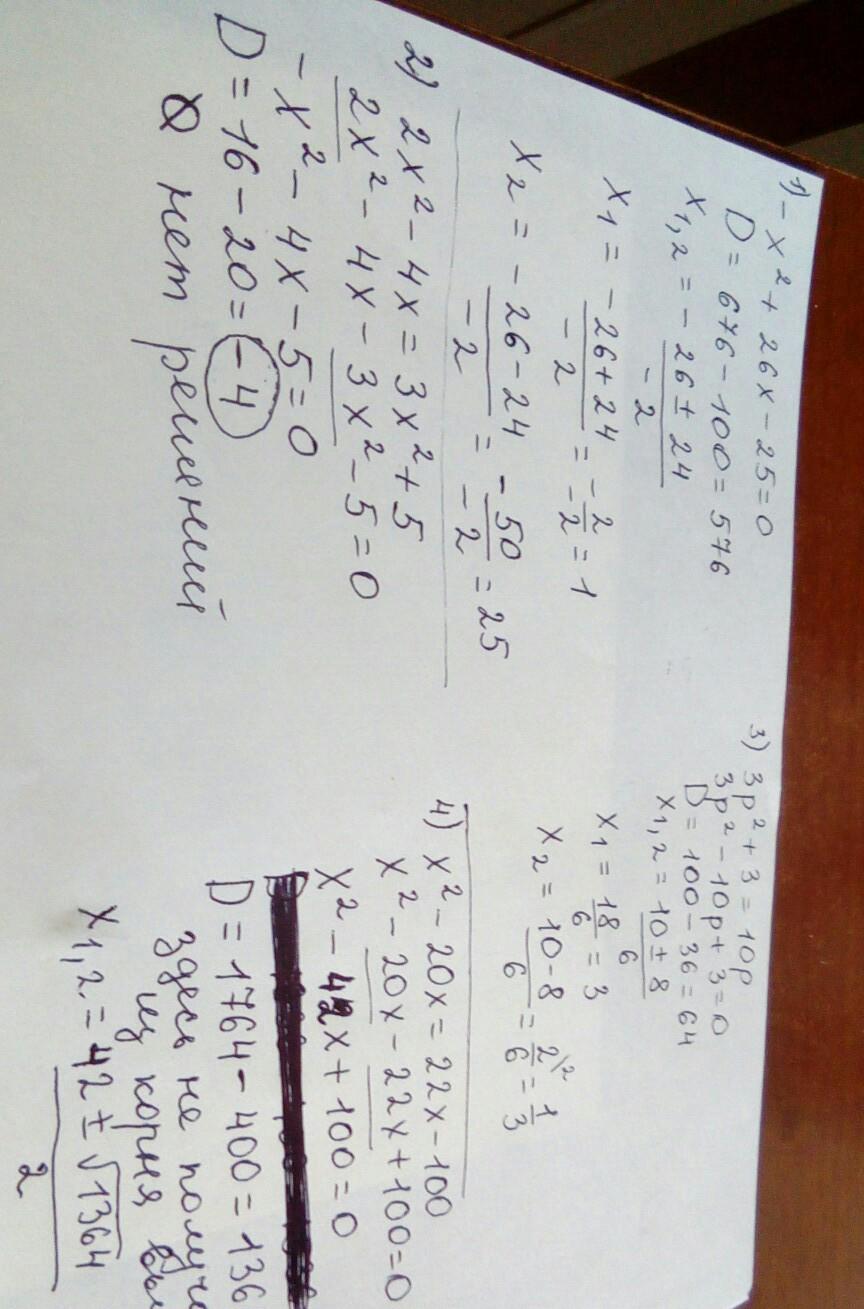 1) -x² + 26x - 25 = 0
D = 676 - 100 = 576
x₁,₂ = (-26 ± 24)/(-2)
x₁ = (-26 + 24)/(-2) = (-2)/(-2) = 1
x₂ = (-26 - 24)/(-2) = (-50)/(-2) = 25
2) 2x² - 4x = 3x² + 5
2x² - 4x - 3x² - 5 = 0
-x² - 4x - 5 = 0
D = 16 - 20 = -4
∅ нет решений
3) 3p² + 3 = 10p
3p² - 10p + 3 = 0
D = 100 - 36 = 64
x₁,₂ = (10 ± 8)/6
x₁ = 18/6 = 3
x₂ = (10 - 8)/6 = 2/6 = 1/3
4) x² - 20x = 22x - 100
x² - 20x - 22x + 100 = 0
x² - 42x + 100 = 0
D = 1764 - 400 = 136
здесь не
из корня
x₁,₂ = (42 ± √1364)/2